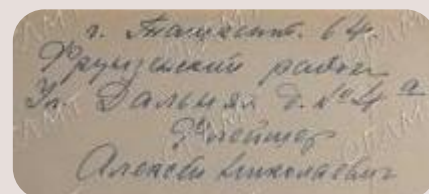 г. Ташкент. 64
Фрунзенский район
Ул. Дальняя д. №4 а
Алексей Николаевич